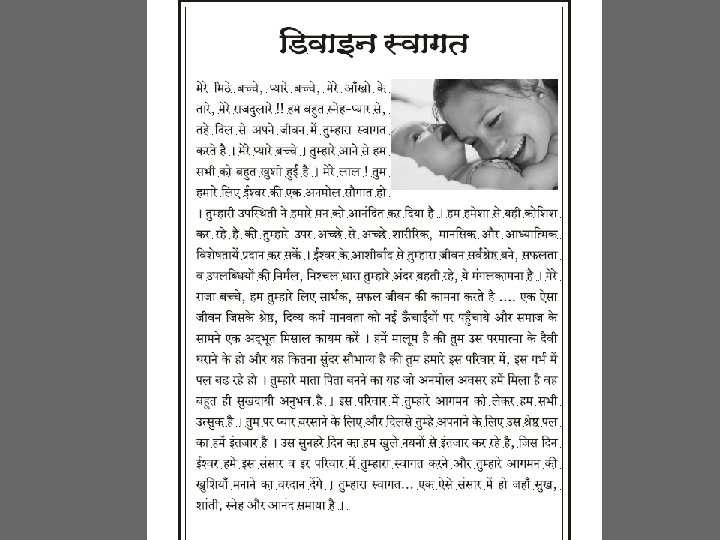 डिवाइन स्वागत
मेरे मिठे बच्चे, प्यारे बच्चे, मेरे आँखो के
तारे, मेरे राजदुलारे !! हम बहुत स्नेह-प्यार से,
तहे दिल से अपने जीवन में तुम्हारा स्वागत
करते है । मेरे प्यारे बच्चे । तुम्हारे आने से हम
सभी को बहुत खुशी हुई है । मेरे लाल ! तुम
हमारे लिए ईश्वर की एक अनमोल सौगात हो
। तुम्हारी उपस्थिती ने हमारे मन को आनंदित कर दिया है । हम हमेशा से बही कोशिश
कर रहे है की तुम्हारे उपर अच्छे से अच्छे शारीरिक, मानसिक और आध्यात्मिक
विशेषतायें प्रदान कर सकें । ईश्वर के आशीर्वाद से तुम्हारा जीवन सर्वश्रेष्ठ बने, सफलता
व उपलब्धियों की निर्मल, निश्चल धारा तुम्हारे अंदर बहती रहे, ये मंगलकामना है । मेरे
राजा बच्चे, हम तुम्हारे लिए सार्थक, सफल जीवन की कामना करते है .... एक ऐसा
जीवन जिसके श्रेष्ठ, दिव्य कर्म मानवता को नई ऊँचाईयों पर पहुँचाये और समाज के
सामने एक अद्भूत मिसाल कायम करें । हमें मालूम है की तुम उस परमात्मा के दैवी
घराने के हो और यह कितना सुंदर सौभाग्य है की तुम हमारे इस परिवार में, इस गर्भ में
पल बढ रहे हो । तुम्हारे माता पिता बनने का यह जो अनमोल अवसर हमें मिला है वह
बहुत ही सुखदायी अनुभव है । इस परिवार में तुम्हारे आगमन को लेकर हम सभी
उत्सुक है । तुम पर प्यार बरसाने के लिए और दिलसे तुम्हे अपनाने के लिए उस श्रेष्ठ पल
का हमें इंतजार है । उस सुनहरे दिन का हम खुले नयनों से इंतजार कर रहे है, जिस दिन
ईश्वर हमे इस संसार व इर परिवार में तुम्हारा स्वागत करने और तुम्हारे आगमन की
खुशियाँ मनाने का वरदान देंगे । तुम्हारा स्वागत... एक ऐसे संसार में हो जहाँ सुख,
शांती, स्नेह और आनंद समाया है ।